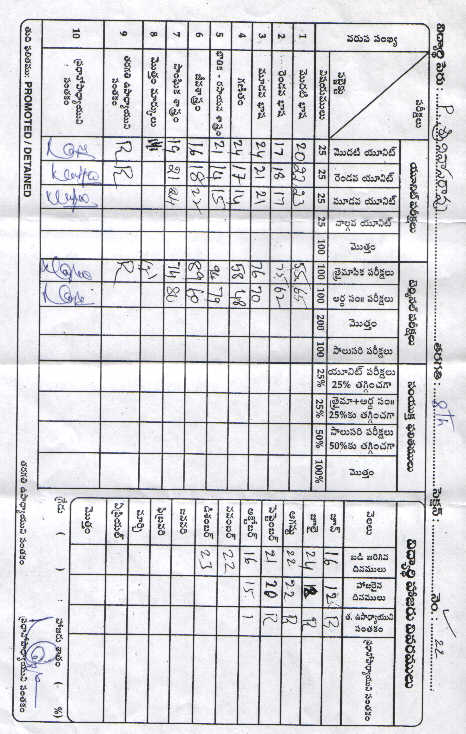 విద్యార్థి పేరు: P. శ్రీనివాసరావు తరగతి: 8th సెక్షన్: నెం: 22
వరుస సంఖ్య
పరీక్షలు
విషయములు
యూనిట్ పరీక్షలు
టెర్మినల్ పరీక్షలు
సంయుక్త ఫలితములు
మొదటి యూనిట్ 25
రెండవ యూనిట్ 25
మూడవ యూనిట్ 25
నాల్గవ యూనిట్ 25
మొత్తం 100
త్రైమాసిక పరీక్షలు 100
అర్ధ సం॥ పరీక్షలు 100
మొత్తం 200
పాలుసరి పరీక్షలు 100
యూనిట్ పరీక్షలు 25% తగ్గించగా 25%
త్రైమా+అర్ధ సం॥ 25%కు తగ్గించగా 25%
పాలుసరి పరీక్షలు 50%కు తగ్గించగా 50%
మొత్తం 100%
1 మొదటి భాష 20 22 23 55 65
2 రెండవ భాష 17 18 17 75 62
3 మూడవ భాష 24 21 21 76 70
4 గణితం 24 17 14 58 48
5 భౌతిక - రసాయన శాస్త్రం 21 14 15 92 79
6 జీవశాస్త్రం 16 18 22 89 60
7 సాంఘిక శాస్త్రం 16 21 24 74 80
8 మొత్తం మార్కులు
9 తరగతి ఉపాధ్యాయుని సంతకం R R R
10 ప్రధానోపాధ్యాయుని సంతకం
తుది ఫలితము: PROMOTED / DETAINED
విద్యార్థి హాజరు వివరములు
నెలలు
బడి జరిగిన దినములు
హాజరైన దినములు
త. ఉపాధ్యాయుని సంతకం
ప్రధానోపాధ్యాయుని సంతకం
జూన్ 16 R
జూలై 24 R
ఆగష్టు 22 22 R
సెప్టెంబర్ 21 20 R
అక్టోబర్ 16 15 1
నవంబర్ 22
డిశంబర్ 23
జనవరి
ఫిబ్రవరి
మార్చి
ఏప్రియల్
మొత్తం
గ్రేడు ( ) : హాజరు శాతం ( %)
తరగతి ఉపాధ్యాయుని సంతకం
ప్రధానోపాధ్యాయుని సంతకం